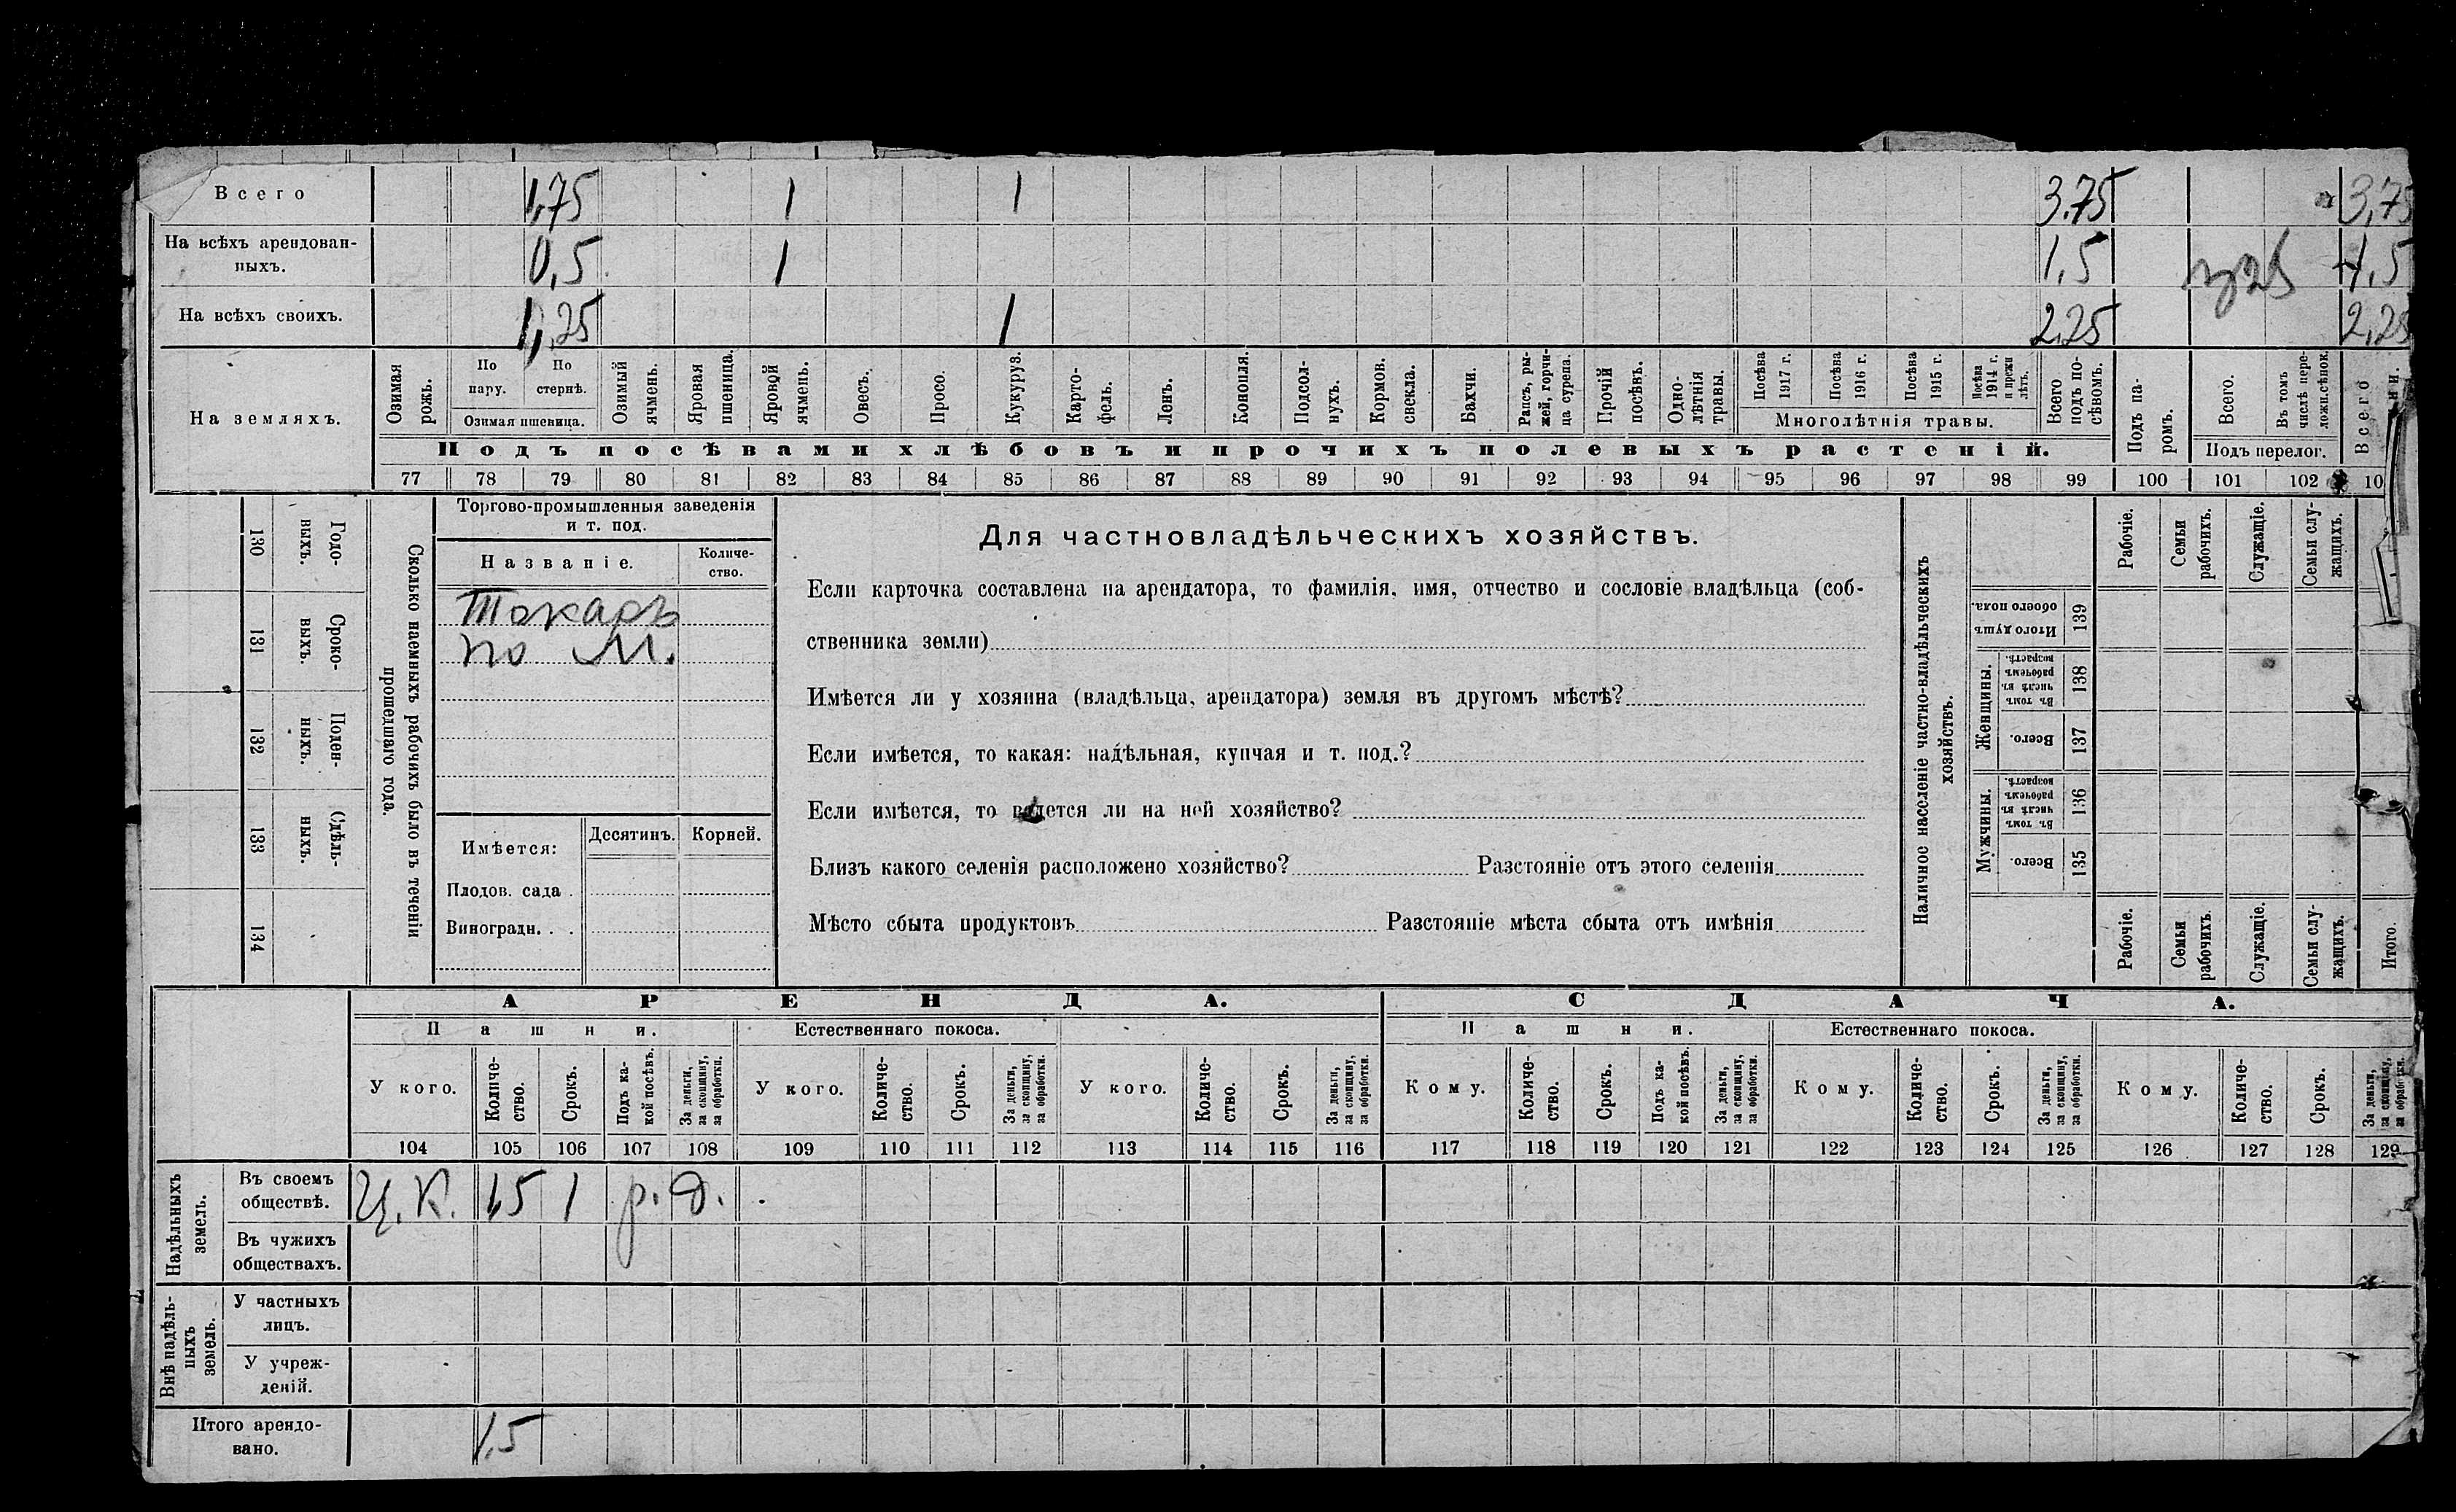 Всего 1,75 1 1 3.75 3,75
На всѣхъ арендован-
ныхъ. 0,5 1 1,5 1,5
На всѣхъ своихъ. 1,25 1 2,25 2,25
На земляхъ.
Озимая рожь.
По пару.
По стернѣ.
Озимая пшеница.
Озимый ячмень.
Яровая пшеница.
Яровой ячмень.
Овесъ.
Просо.
Кукуруз.
Карто-
фель.
Ленъ.
Конопля.
Подсол-
нухъ.
Кормов.
свекла.
Бахчи.
Рапсъ, ры-
жей, горчи-
ца сурепа.
Прочій
посѣвъ.
Одно-
лѣтнія
травы.
Посѣва 1917 г.
Посѣва 1916 г.
Посѣва 1915 г.
Посѣва 1914 г. и прежн. лѣтъ.
Многолѣтнія травы.
Всего
подъ по-
сѣвомъ.
Подъ па-
ромъ.
Всего.
Въ томъ
числѣ пере-
ложн.сѣнок.
Подъ перелог.
Всего
Подъ посѣвами хлѣбовъ и прочихъ полевыхъ растеній.
77 78 79 80 81 82 83 84 85 86 87 88 89 90 91 92 93 94 95 96 97 98 99 100 101 102 10
130 Годо-
ныхъ.
131 Сроко-
выхъ.
132 Поден-
ныхъ.
133 Сдѣль-
ныхъ.
134
Сколько наемныхъ рабочихъ было въ теченіи
прошедшаго года.
Торгово-промышленныя заведенія
и т. под.
Названіе.
Количе-
ство.
Токарь
по М.
Имѣется:
Десятинъ.
Корней.
Плодов. сада .
Виноградн. . .
Для частновладѣльческихъ хозяйствъ.
Если карточка составлена на арендатора, то фамилія, имя, отчество и сословіе владѣльца (соб-
ственника земли)
Имѣется ли у хозяина (владѣльца, арендатора) земля въ другомъ мѣстѣ?
Если имѣется, то какая: надѣльная, купчая и т. под.?
Если имѣется, то ведется ли на ней хозяйство?
Близъ какого селенія расположено хозяйство? Разстояніе отъ этого селенія
Мѣсто сбыта продуктовъ Разстояніе мѣста сбыта отъ имѣнія
Наличное населеніе частно-владѣльческихъ
хозяйствъ.
Рабочіе.
Семьи
рабочихъ.
Служащіе.
Семьи слу-
жащихъ.
Итого душъ
обоего пола.
139
Женщины.
Въ томъ
числѣ въ
рабочемъ
возрастѣ.
138
Всего.
137
Мужчины.
Въ томъ
числѣ въ
рабочемъ
возрастѣ.
136
Всего.
135
Рабочіе.
Семьи
рабочихъ.
Служащіе.
Семьи слу-
жащихъ.
Итого.
АРЕНДА. СДАЧА.
Пашни. Естественнаго покоса. Пашни. Естественнаго покоса.
У кого.
Количе-
ство.
Срокъ.
Подъ ка-
кой посѣвъ.
За деньги,
за скопщину,
за обработки.
У кого.
Количе-
ство.
Срокъ.
За деньги,
за скопщину,
за обработки.
У кого.
Количе-
ство.
Срокъ.
За деньги,
за скопщину,
за обработки.
Кому.
Количе-
ство.
Срокъ.
Подъ ка-
кой посѣвъ.
За деньги,
за скопщину,
за обработки.
Кому.
Количе-
ство.
Срокъ.
За деньги,
за скопщину,
за обработки.
Кому.
Количе-
ство.
Срокъ.
За деньги,
за скопщину,
за обработки.
104 105 106 107 108 109 110 111 112 113 114 115 116 117 118 119 120 121 122 123 124 125 126 127 128 129
Надѣльныхъ
земель.
Въ своемъ
обществѣ. Ц. К. 1,5 1 р. д.
Въ чужихъ
обществахъ.
Внѣ надѣль-
ныхъ
земель.
У частныхъ
лицъ.
У учреж-
деній.
Итого арендо-
вано. 1,5